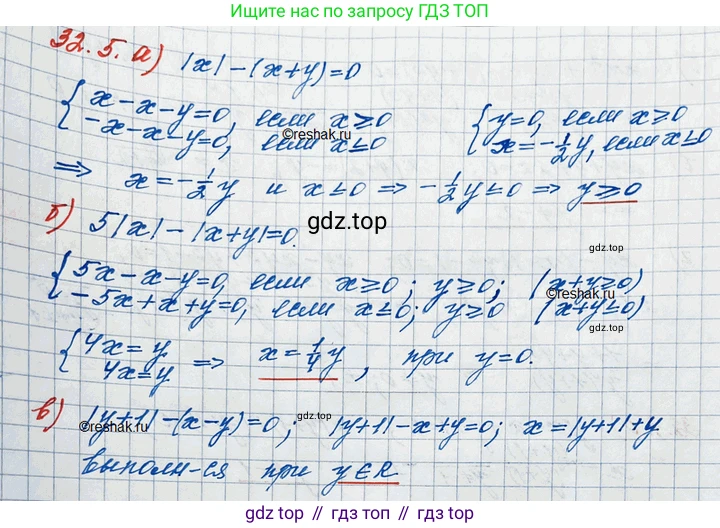 Ищите нас по запросу ГДЗ ТОП
32.5. а) |x| - (x+y) = 0
{ x-x-y=0, если x≥0
-x-x-y=0, если x≤0
{ y=0, если x≥0
x=-1/2y, если x≤0
©reshak.ru
⇒ x=-1/2y и x≤0 ⇒ -1/2y≤0 ⇒ y≥0
б) 5|x| - |x+y|=0.
gdz.top
gdz.top
{ 5x-x-y=0, если x≥0; y≥0; (x+y≥0)
-5x+x+y=0, если x≤0; y≥0 (x+y≤0)
©reshak.ru
gdz.top
{ 4x=y
4x=y ⇒ x=1/4y, при y=0.
в) |y+1| - (x-y)=0; |y+1|-x+y=0; x=|y+1|+y
©reshak.ru
gdz.top
выполн-ся при y∈R
gdz.top // гдз топ // gdz.top